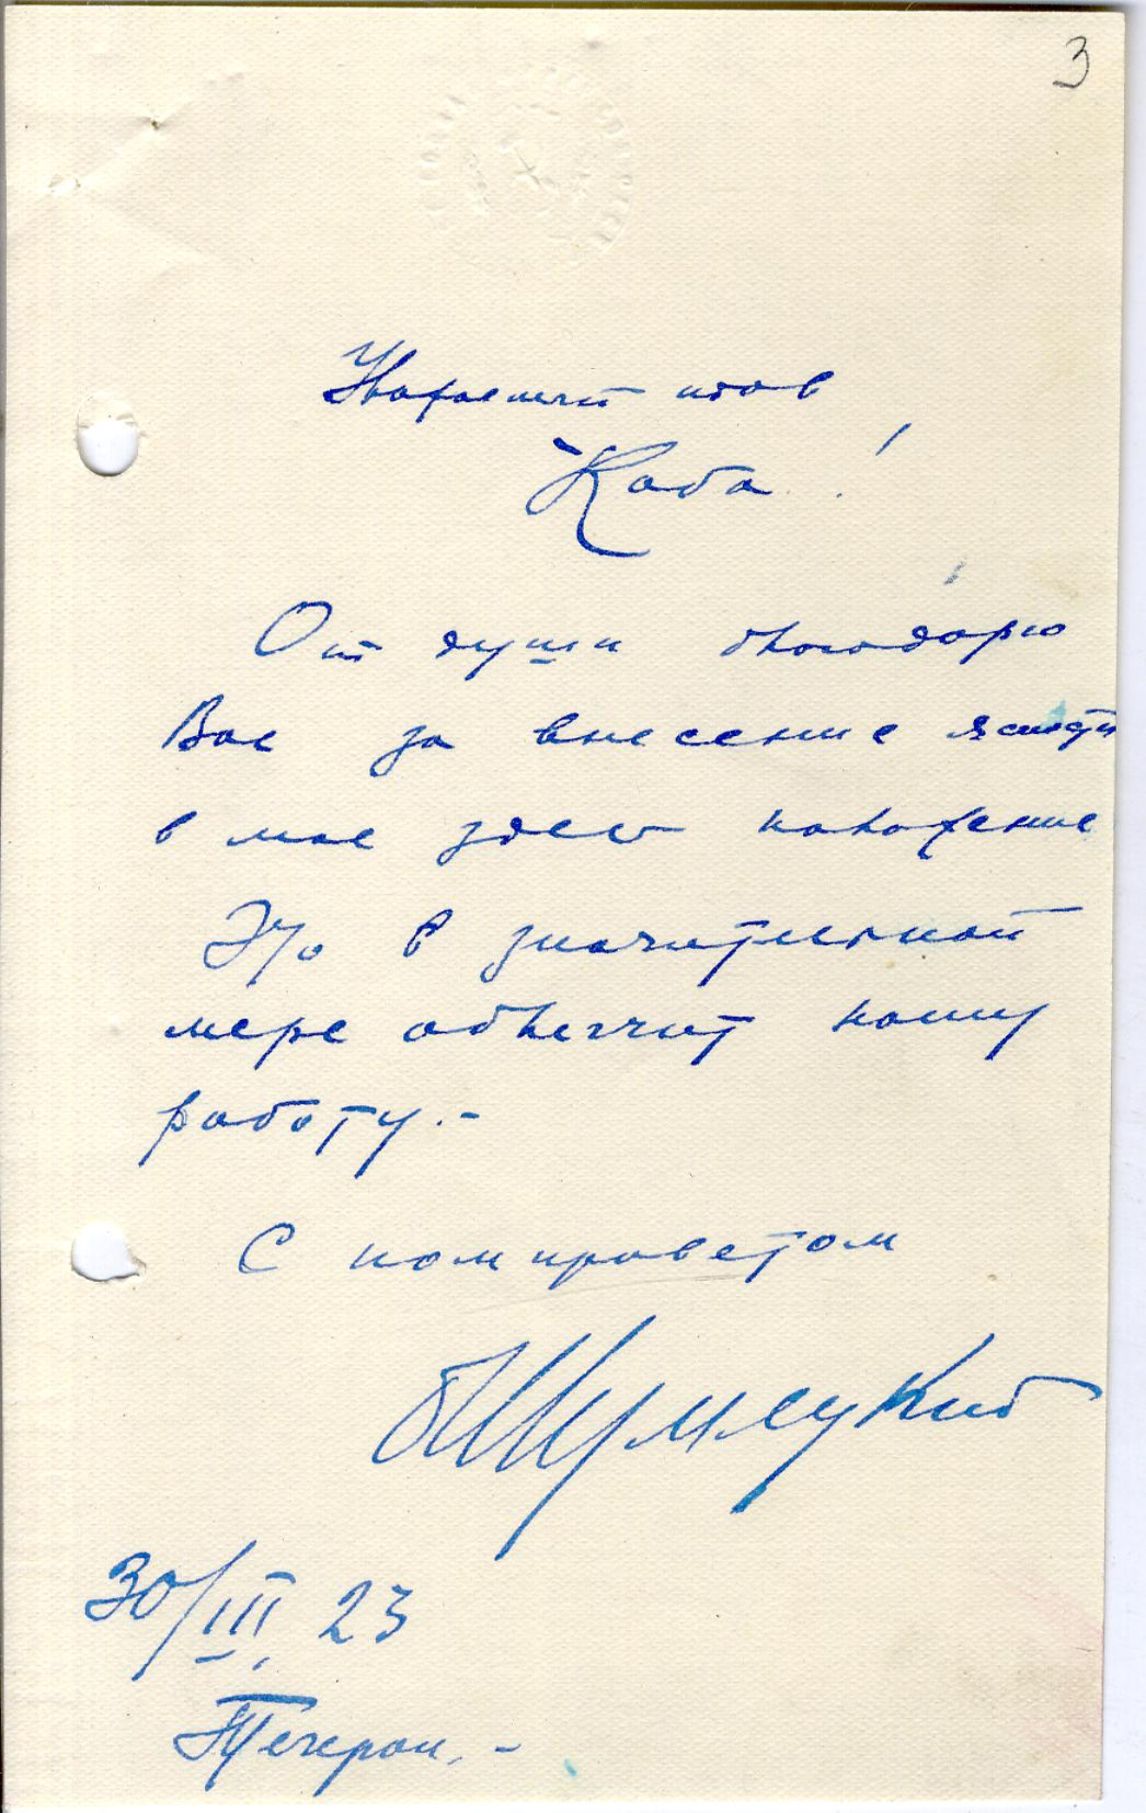 3
Уважаемый тов
Коба!
От души благодарю
Вас за внесение ясности
в мое здесь положение
Это в значительной
мере облегчит нашу
работу.-
С ком приветом
БШумяцкий
30/III 23
Тегеран.-